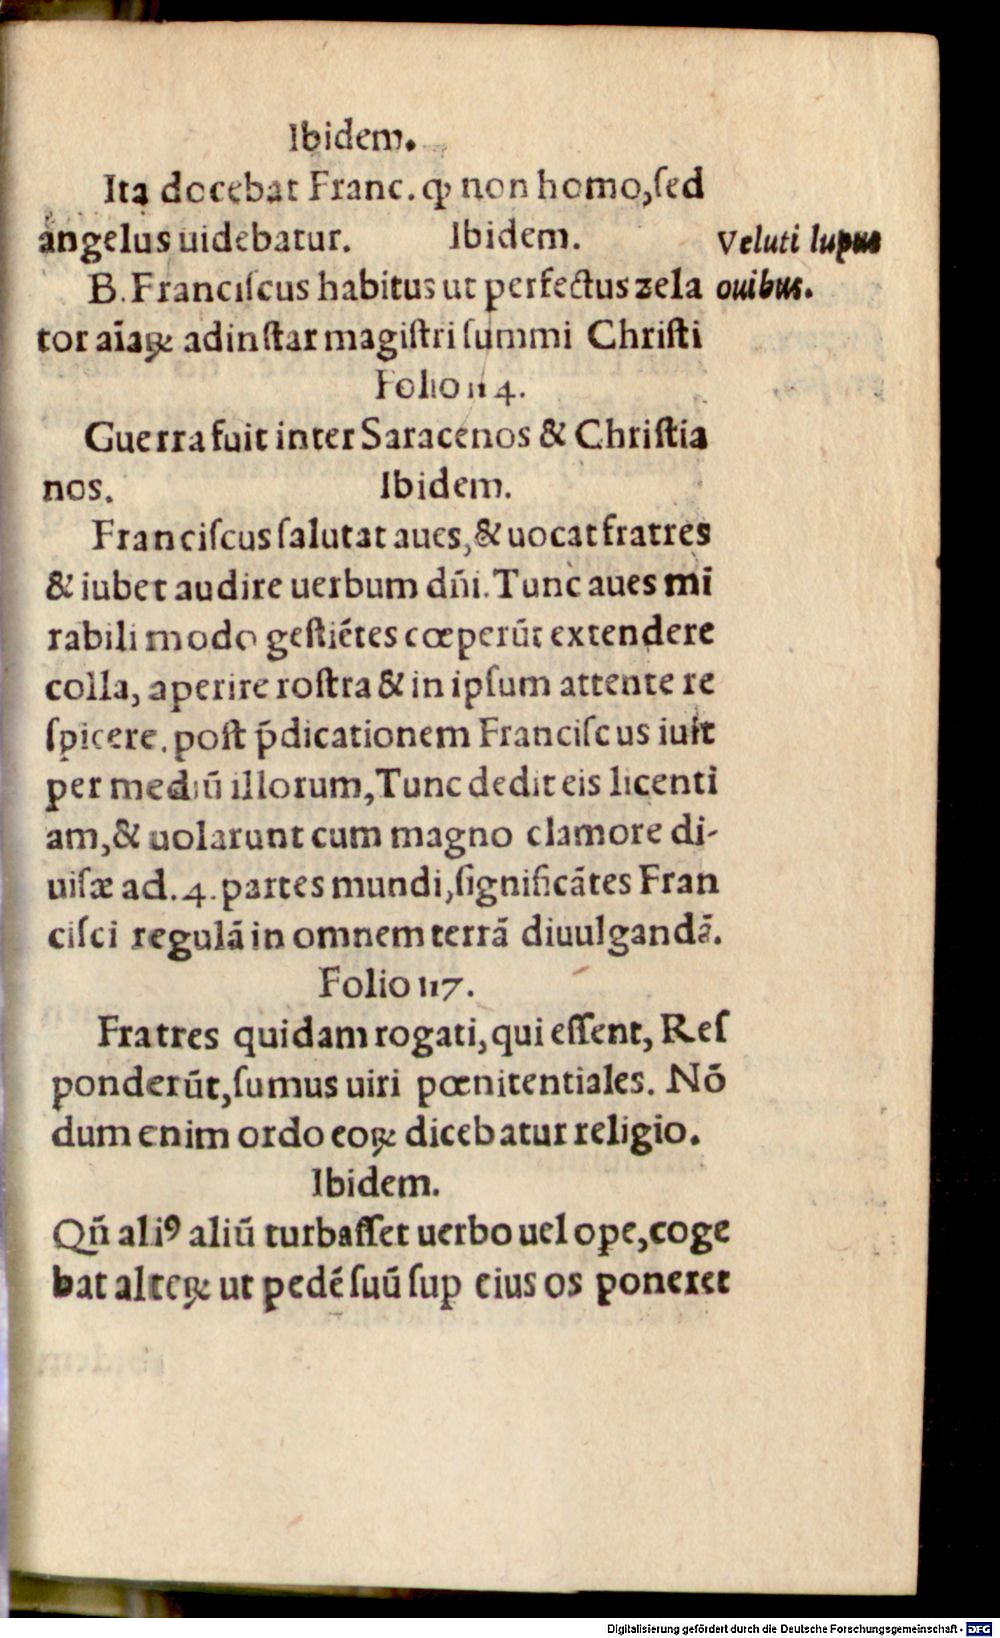 Ibidem.
Ita docebat Franc. ꝙ non homo, ſed
angelus uidebatur. Ibidem.
Veluti lupus
B. Franciſcus habitus ut perfectus zela
ouibus.
tor aīaꝝ ad inſtar magiſtri ſummi Chriſti
Folio 114.
Guerra fuit inter Saracenos & Chriſtia
nos. Ibidem.
Franciſcus ſalutat aues, & uocat fratres
& iubet audire uerbum dñi. Tunc aues mi
rabili modo geſtiētes cœperūt extendere
colla, aperire roſtra & in ipſum attente re
ſpicere, poſt p̄dicationem Franciſcus iuit
per mediū illorum, Tunc dedit eis licenti
am, & uolarunt cum magno clamore di-
uiſæ ad .4. partes mundi, ſignificātes Fran
ciſci regulā in omnem terrā diuulgandā.
Folio 117.
Fratres quidam rogati, qui eſſent, Reſ
ponderūt, ſumus uiri pœnitentiales. Nō
dum enim ordo eoꝝ dicebatur religio.
Ibidem.
Qñ aliꝰ aliū turbaſſet uerbo uel ope, coge
bat alteꝝ ut pedē ſuū ſup eius os poneret
Digitalisierung gefördert durch die Deutsche Forschungsgemeinschaft - DFG